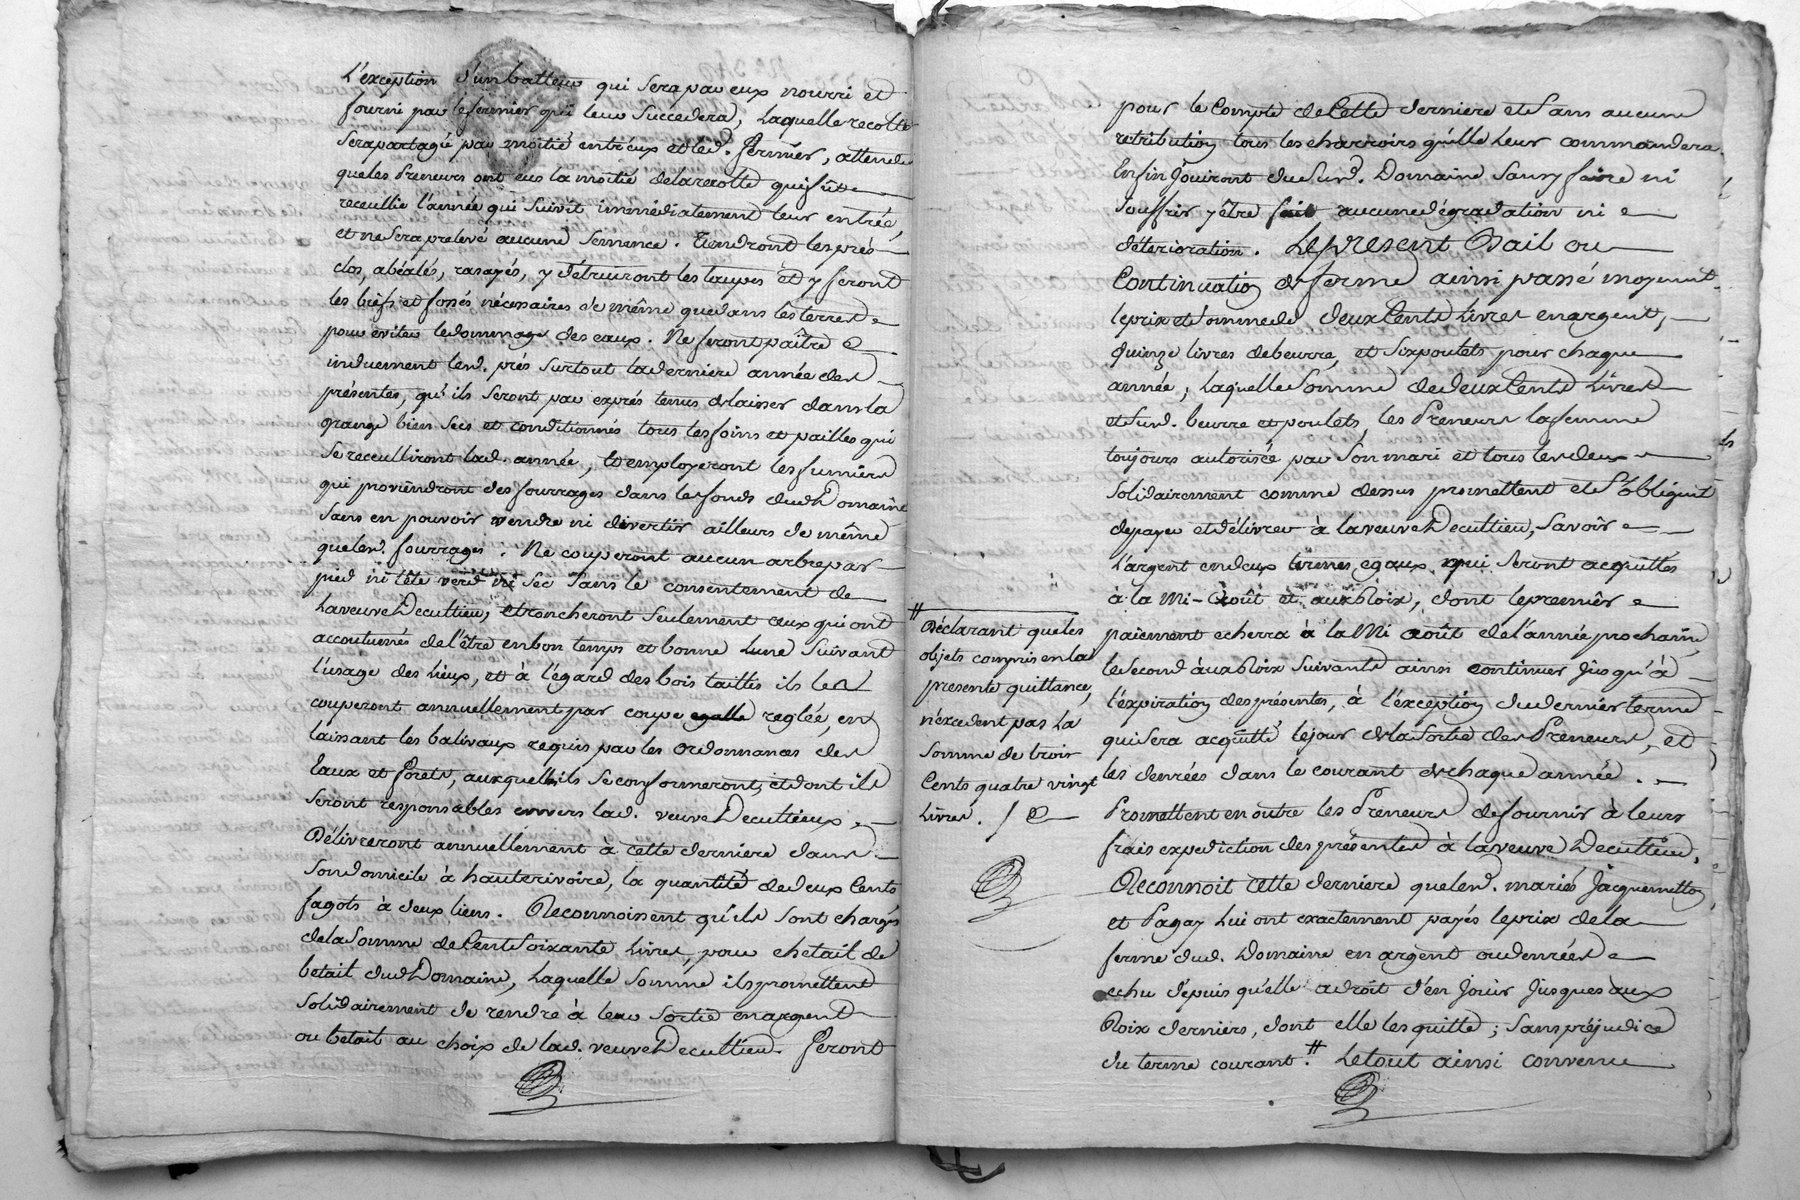 L'exception d'un batteur qui sera par eux nourri et
fourni par le fermier qui leur succedera, laquelle recolte
sera partagée par moitié entr'eux et led. fermier, attendu
que les Preneurs ont eus la moitié de la recolte qui fût
receuillie l'année qui suivit immédiatement leur entrée,
et ne sera prelevé aucune semence. Tiendront les prés
clos, abéalés, rasayés, y détruiront les taupes et y feront
les biefs et fossés nécessaires de même que dans les terres
pour éviter le dommage des eaux. Ne feront paître
induement lesd. prés surtout la derniere année des
présentes, qu'ils seront par exprés tenus de laisser dans la
grange bien secs et conditionnés tous les foins et pailles qui
se receulliront lad. année, et employeront les fumiers
qui proviendront des fourrages dans le fonds dud. Domaine
sans en pouvoir vendre ni divertir ailleurs de même
que lesd. fourrages. Ne couperont aucun arbre par
pied ni tête verd ni sec sans le consentement de
la veuve Decultieu, et troncheront seulement ceux qui ont
accoutumés de l'être en bon temps et bonne lune suivant
l'usage des lieux, et à l'égard des bois taillis ils les
couperont annuellement par coupe egalle reglée, en
laissant les balivaux requis par les ordonnances des
Eaux et forets, auxquelles ils se conformeront, et dont ils
seront responsables envers lad. veuve Decultieux.
Délivreront annuellement à cette derniere dans
son domicile à hauterivoire, la quantité de deux cents
fagots à deux liens. Reconnoissent qu'ils sont chargés
de la somme de Cent Soixante Livres, pour chetail de
betail dud. Domaine, laquelle somme ils promettent
solidairement de rendre à leur sortie en argent
ou betail au choix de lad. veuve Decultieu. feront
pour le compte de Cette derniere et sans aucune
retribution tous les charrois qu'elle leur commandera.
Enfin Jouiront du Sud. Domaine sans y faire ni
souffrir y être fait aucune dégradation ni
déterioration. Le présent Bail ou
Continuation de ferme ainsi passé moyennt.
le prix et somme de deux Cents Livres en argent,
quinze livres de beurre, et six poulets pour chaque
année, laquelle somme de deux Cents Livres
et Sud. beurre et poulets, les Preneurs la femme
toujours autorisée par son mari et tous les deux
solidairement comme dessus promettent et s'obligent
de payer et délivrer à la veuve Decultieu, savoir
L'argent en deux termes egaux, qui seront acquittés
à la Mi-Août et aux Roix, dont le premier
paiement echerra à la Mi août de l'année prochaine,
le second aux Roix suivants ainsi continuer jusqu'à
l'expiration des présentes, à l'exception du dernier terme
qui sera acquitté le jour de la sortie des Preneurs, et
les denrées dans le courant de chaque année.
Promettent en outre les Preneurs de fournir à leurs
frais expedition des présentes à la veuve Decultieu.
Reconnoit cette derniere que lesd. mariés Jacquemetton
et Pagay lui ont exactement payés le prix de la
ferme dud. Domaine en argent ou denrées
echu depuis qu'elle a droit d'en Jouir Jusques aux
Roix derniers, dont elle les quitte; sans préjudice
du terme courant.# Le tout ainsi convenu
# Déclarant que les
objets compris en la
presente quittance,
n'excedent pas la
somme de trois
Cents quatre vingt
Livres.